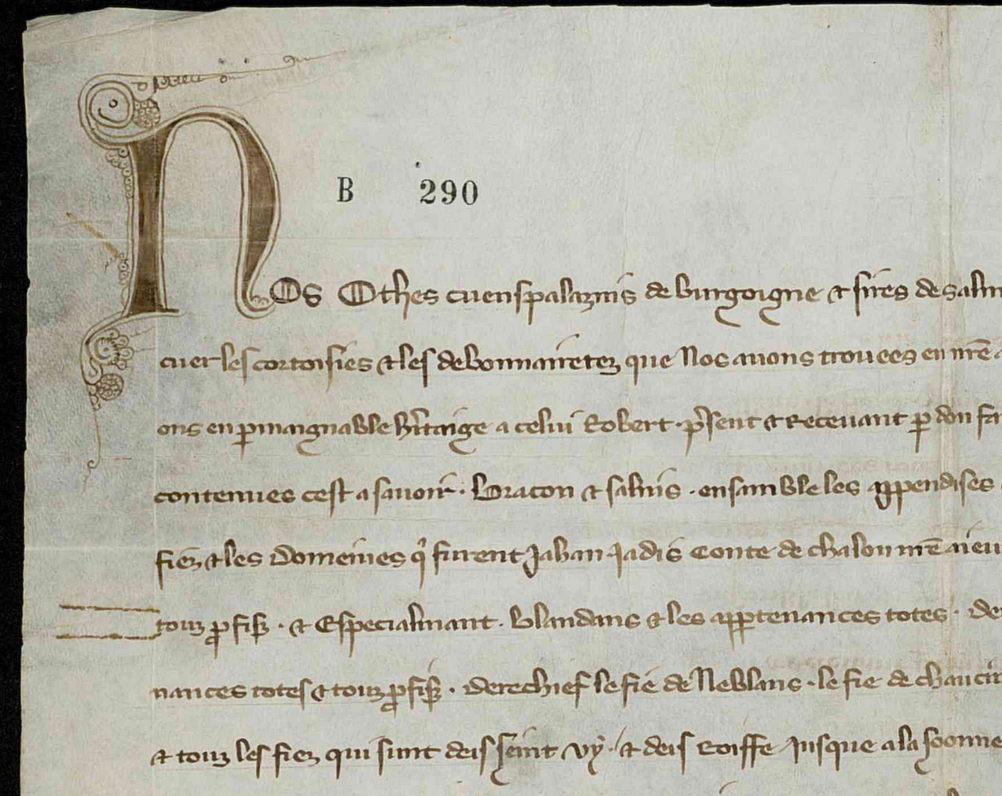 B 290
NOS Othes cuens palazins de burgoigne & sires de salin
cuer les cortoisies & les debonnairetez que Nos auons trouees en nr̃e
ons en ꝑmaignable h̃itaige a celui Robert · p̃sent & Receuant ꝑ don fa
contenues cest a sauoir · Bracon & salins · ensamble les appendises
fiez & les Domeines q̓ furent Jahan jadis Conte de chalon nr̃e aieu
touz ꝓfis · & Especialmant · blandans & les appꝑtenances totes · de
nances totes & touz ꝓfis · derechief le fie de Neblans · le fie de chaucin
& touz les fiez qui sunt deis seint vy · & deis Roiffe jusque a la soonne